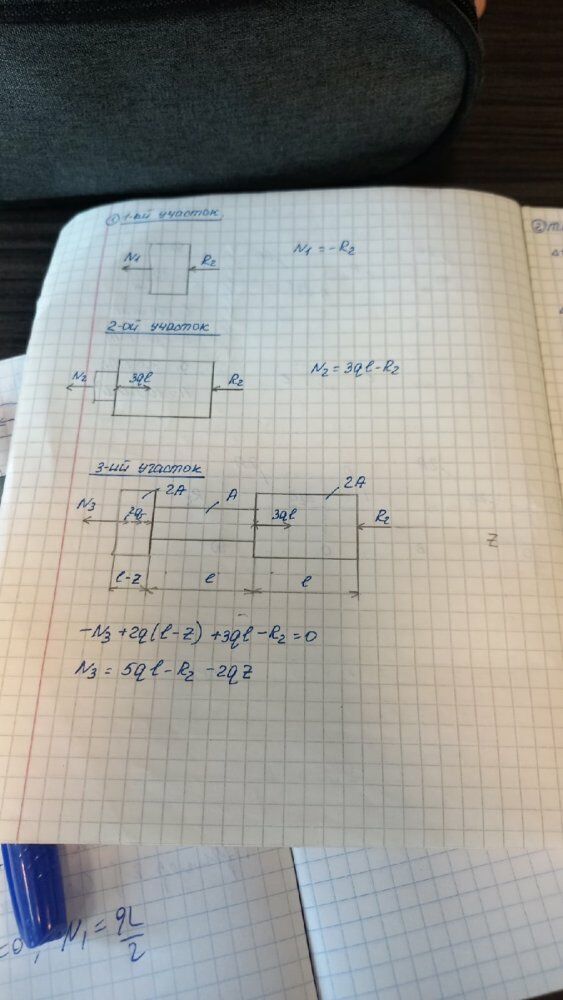 ① 1-ый участок
N1 R2 N1 = -R2
2-ой участок
N2 3ql R2 N2 = 3ql - R2
3-ий участок
2A A 2A
N3 2q 3ql R2
z
l-z l l
-N3 + 2q(l-z) + 3ql - R2 = 0
N3 = 5ql - R2 - 2qz
=0, N1 = qL/2